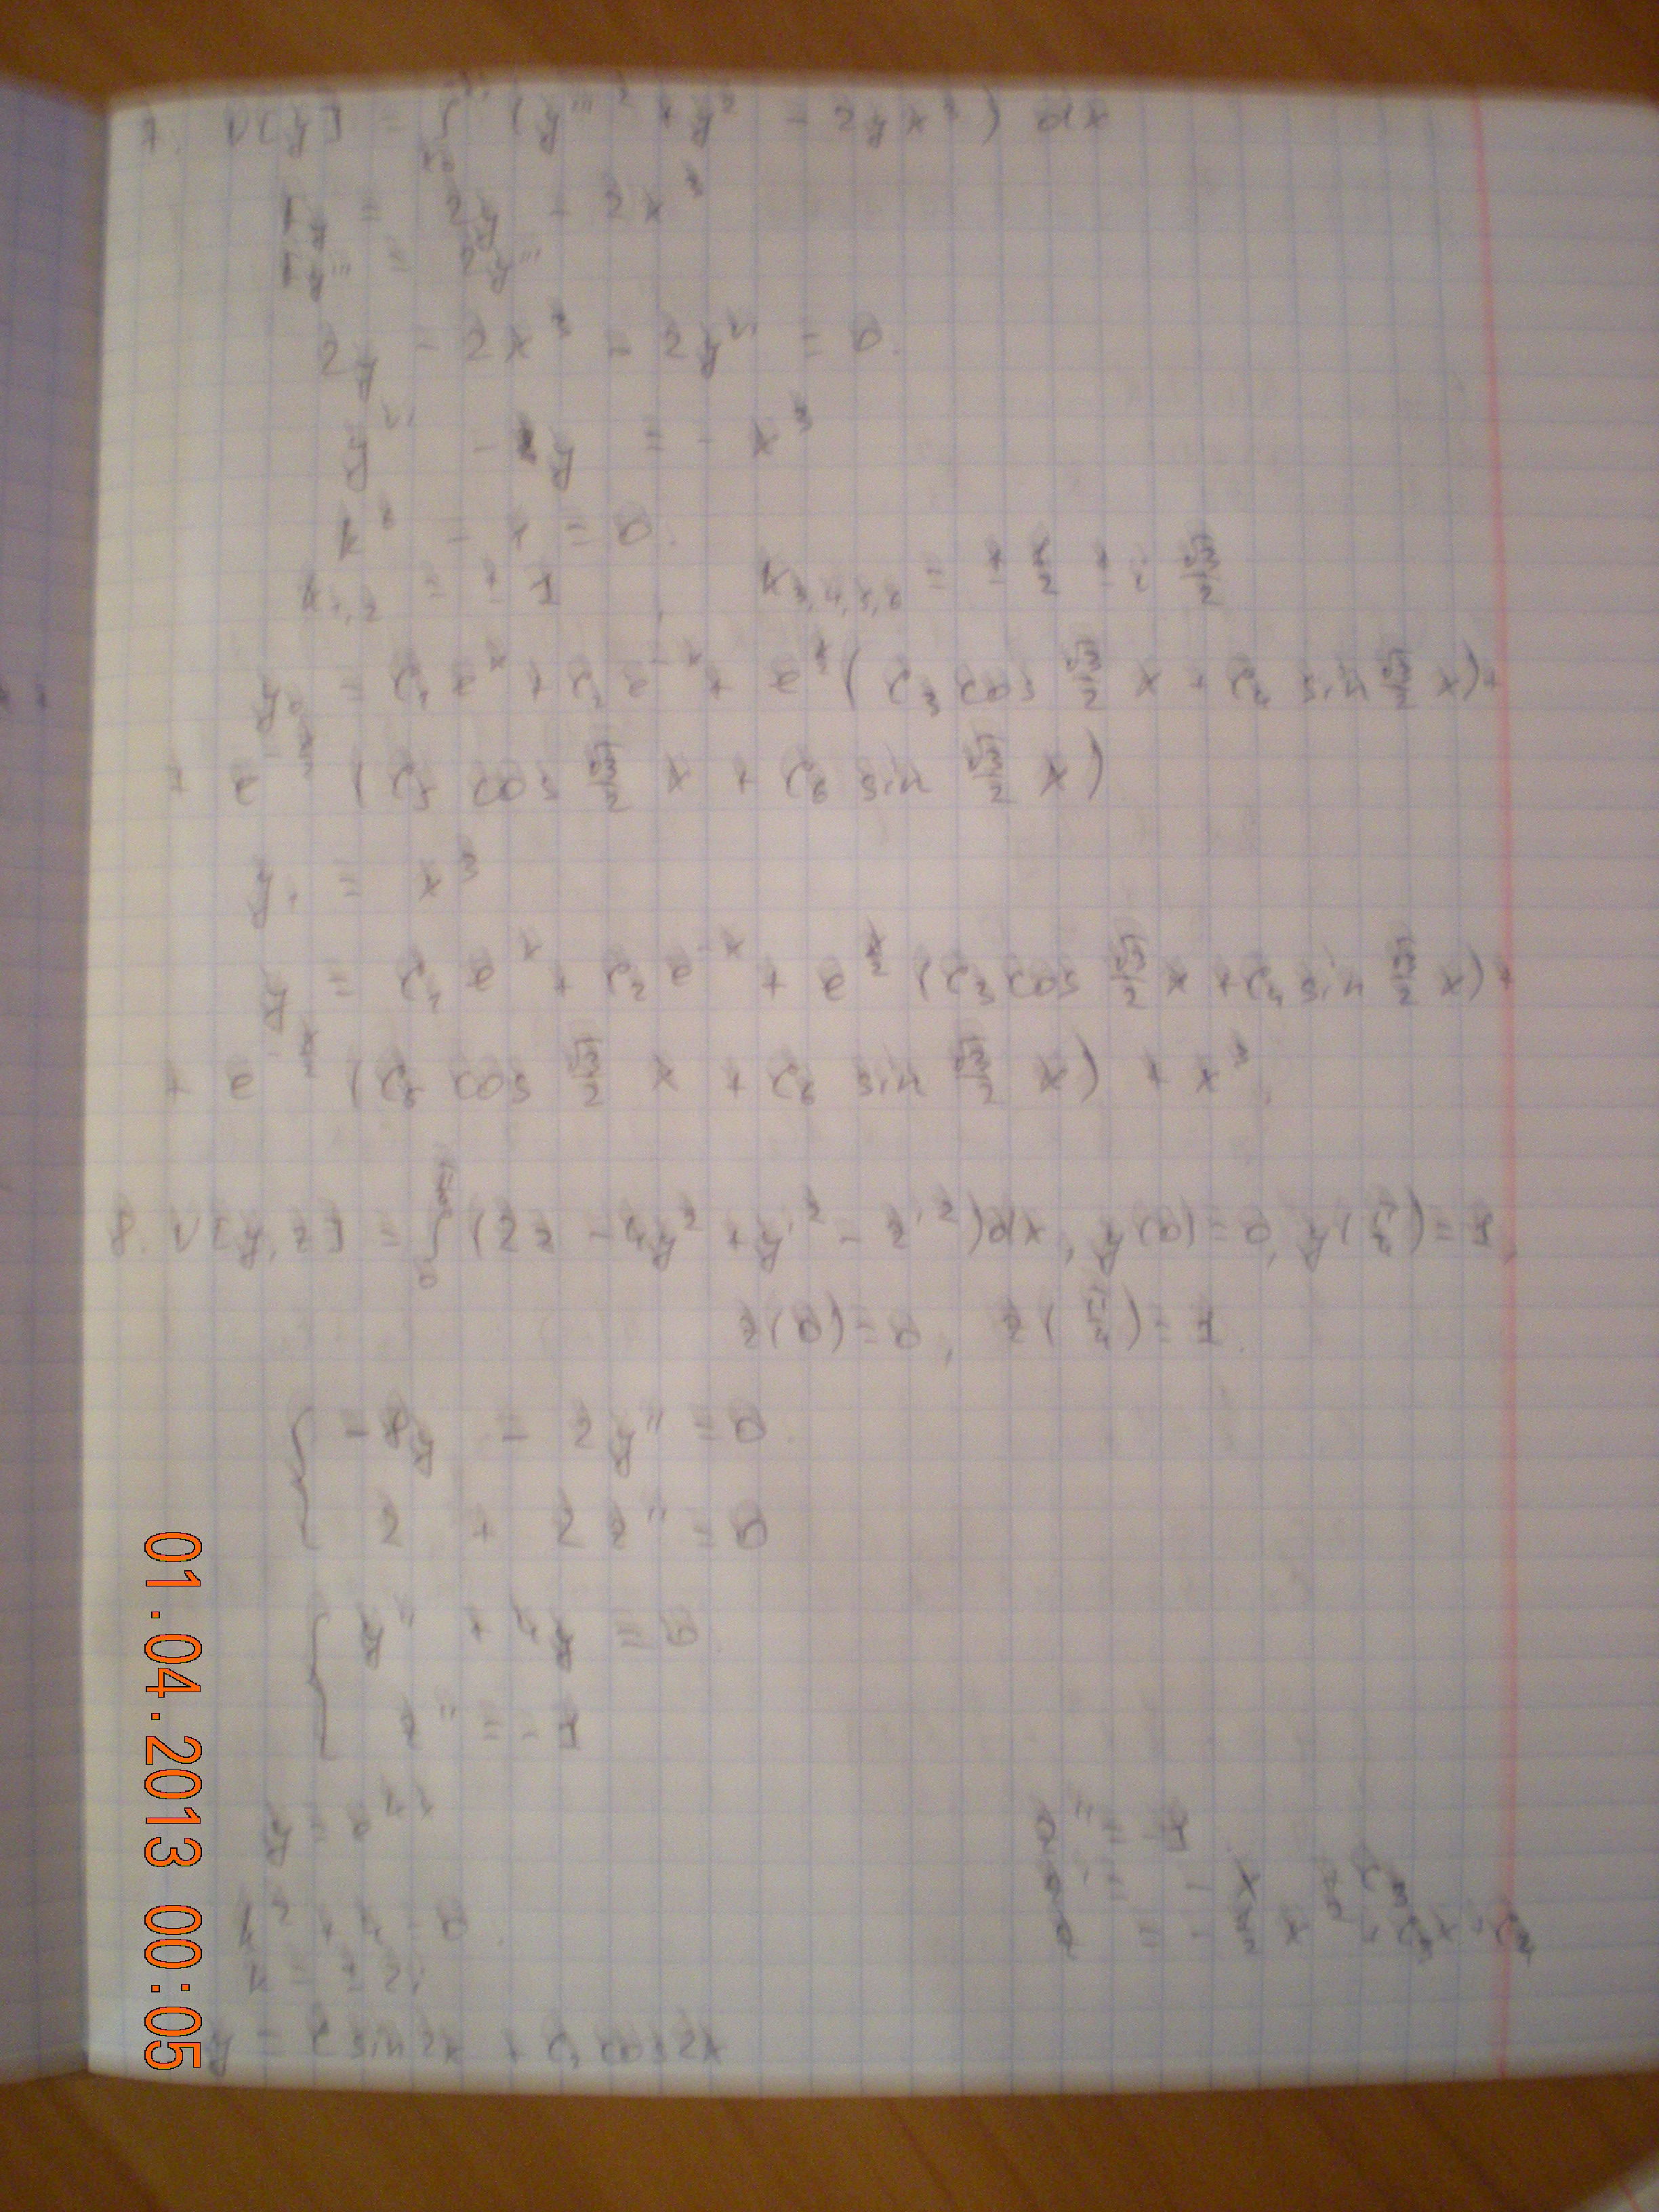 7. V[y] = ∫ₓ₀ˣ¹ (y'''² + y² - 2yx³) dx
F_y = 2y - 2x³
F_y''' = 2y'''
2y - 2x³ - 2y^VI = 0.
y^VI - y = - x³
k⁶ - 1 = 0.
k₁,₂ = ± 1, k₃,₄,₅,₆ = ± 1/2 ± i √3/2
y₀ = C₁e^x + C₂e^-x + e^x/2 (C₃ cos √3/2 x + C₄ sin √3/2 x) +
+ e^-x/2 (C₅ cos √3/2 x + C₆ sin √3/2 x)
y₁ = x³
y = C₁e^x + C₂e^-x + e^x/2 (C₃ cos √3/2 x + C₄ sin √3/2 x) +
+ e^-x/2 (C₅ cos √3/2 x + C₆ sin √3/2 x) + x³.
8. V[y, z] = ∫₀^π/4 (2z - 4y² + y'² - z'²)dx, y(0) = 0, y(π/4) = 1,
z(0) = 0, z(π/4) = 1.
{ -8y - 2y'' = 0.
2 + 2z'' = 0
{ y'' + 4y = 0.
z'' = -1
z'' = -1
z' = - x + C₃
k² + 4 = 0
z = - 1/2 x² + C₃x + C₄
k = ± 2i
y = C sin 2x + C₂ cos 2x
01.04.2013 00:05